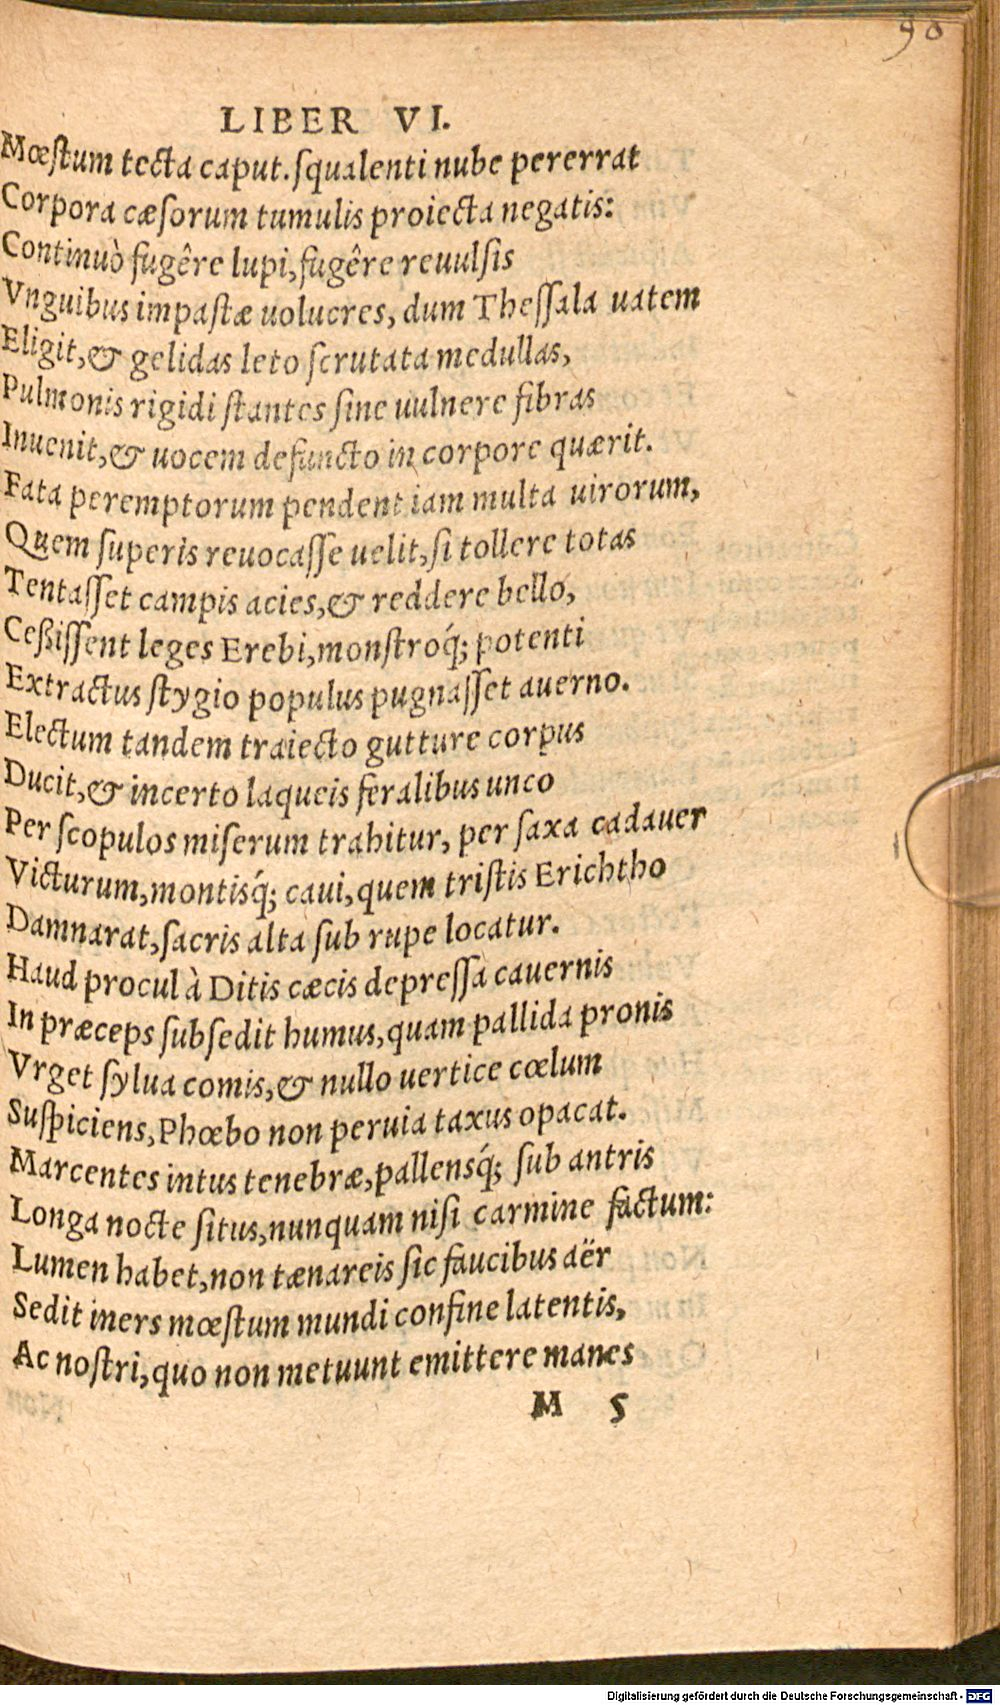 90
LIBER VI.
Mœſtum tecta caput. ſqualenti nube pererrat
Corpora cæſorum tumulis proiecta negatis:
Continuò fugêre lupi, fugêre reuulſis
Vnguibus impaſtæ uolucres, dum Theſſala uatem
Eligit, & gelidas leto ſcrutata medullas,
Pulmonis rigidi ſtantes ſine uulnere fibras
Inuenit, & uocem defuncto in corpore quærit.
Fata peremptorum pendent iam multa uirorum,
Quem ſuperis reuocaſſe uelit, ſi tollere totas
Tentaſſet campis acies, & reddere bello,
Ceßiſſent leges Erebi, monſtroq́; potenti
Extractus ſtygio populus pugnaſſet auerno.
Electum tandem traiecto gutture corpus
Ducit, & incerto laqueis feralibus unco
Per ſcopulos miſerum trahitur, per ſaxa cadauer
Victurum, montisq́; caui, quem triſtis Erichtho
Damnarat, ſacris alta ſub rupe locatur.
Haud procul à Ditis cæcis depreſſa cauernis
In præceps ſubſedit humus, quam pallida pronis
Vrget ſylua comis, & nullo uertice cœlum
Suſpiciens, Phœbo non peruia taxus opacat.
Marcentes intus tenebræ, pallensq́; ſub antris
Longa nocte ſitus, nunquam niſi carmine factum:
Lumen habet, non tænareis ſic faucibus aër
Sedit iners mœſtum mundi confine latentis,
Ac noſtri, quo non metuunt emittere manes
M 5
Digitalisierung gefördert durch die Deutsche Forschungsgemeinschaft - DFG